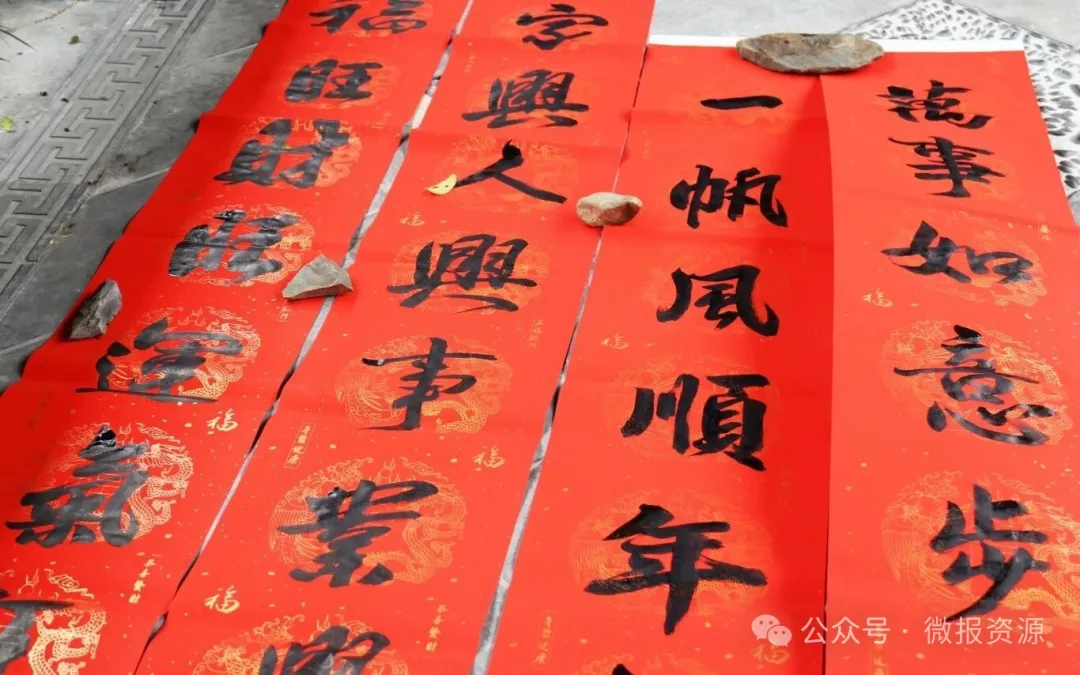 萬事如意步
一帆風順年
家興人興事業興
福旺財旺運氣
福
福
福
福
福
福
公众号 · 微报资源